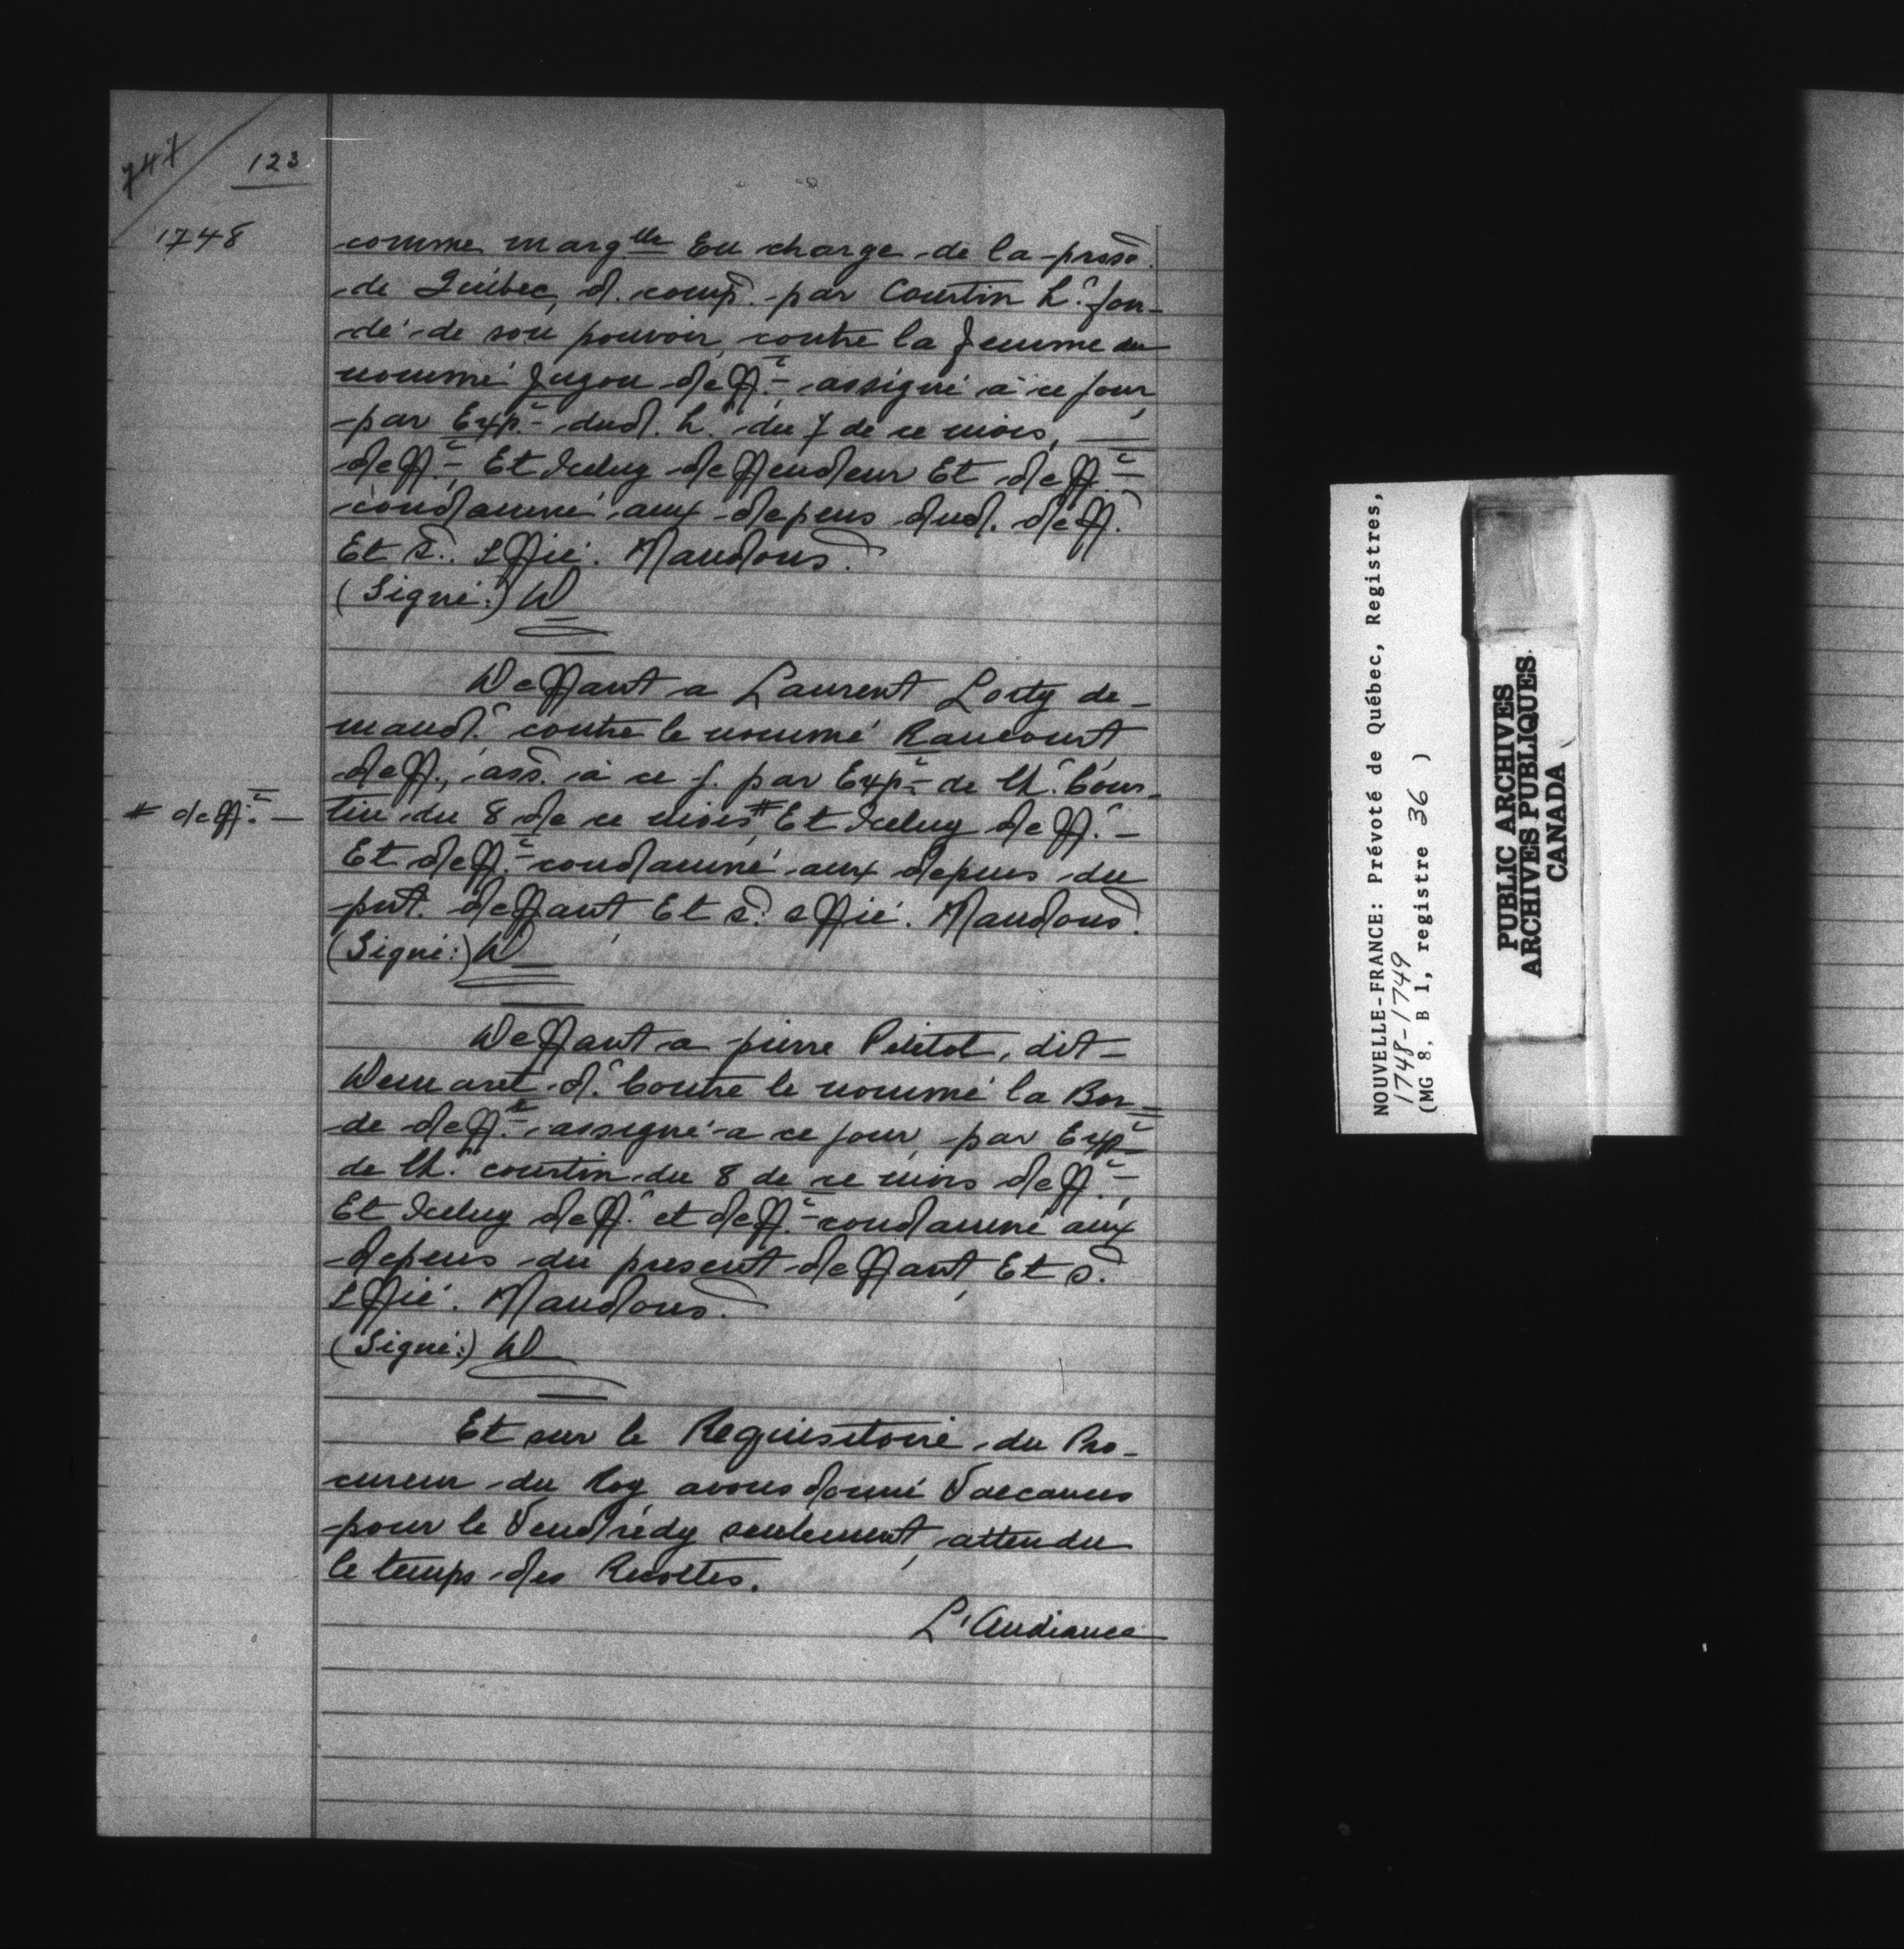 747
123
1748
comme marg.lle En charge de la prse.
de Quêbec, d. comp. par Courtin h.r fon-
dé de son pouvoir, contre la femme du
nommé Jugon deff.te, assigné à ce jour,
par Exp.t dud. h. du 7 de ce mois, —
deff.te Et Iceluy deffendeur Et deff.t
condamné aux depens dud. deff.
Et S. Sffié. Mandons.
(Signé:) D
Deffaut a Laurent Lorty de-
mand.r contre le nommé Rancourt
deff., ass. à ce j. par Exp.t de lh.r Cour-
# deff.t —
tin du 8 de ce mois # Et Iceluy deff.r —
Et deff.t condamné aux depens du
pnt. deffaut Et s. sffié. Mandons.
(Signé:) D
Deffaut a pierre Petitot, dit —
Demaret d.r Contre le nommé la Bor=
de deff.t assigné a ce jour par Exp.t
de lh.r courtin du 8 de ce mois deff.t,
Et Iceluy deff.r et deff.t condamné aux
depens du present deffaut, Et s.
Sffié. Mandons.
(Signé:) D
Et sur le Requisitoire du Pro-
cureur du Roy avons donné Vaccances
pour le Vendredy seulement, attendu
le temps des Recoltes.
L'Audiance
NOUVELLE-FRANCE: Prévoté de Québec, Registres,
1748-1749
(MG 8, B 1, registre 36 )
PUBLIC ARCHIVES
ARCHIVES PUBLIQUES
CANADA